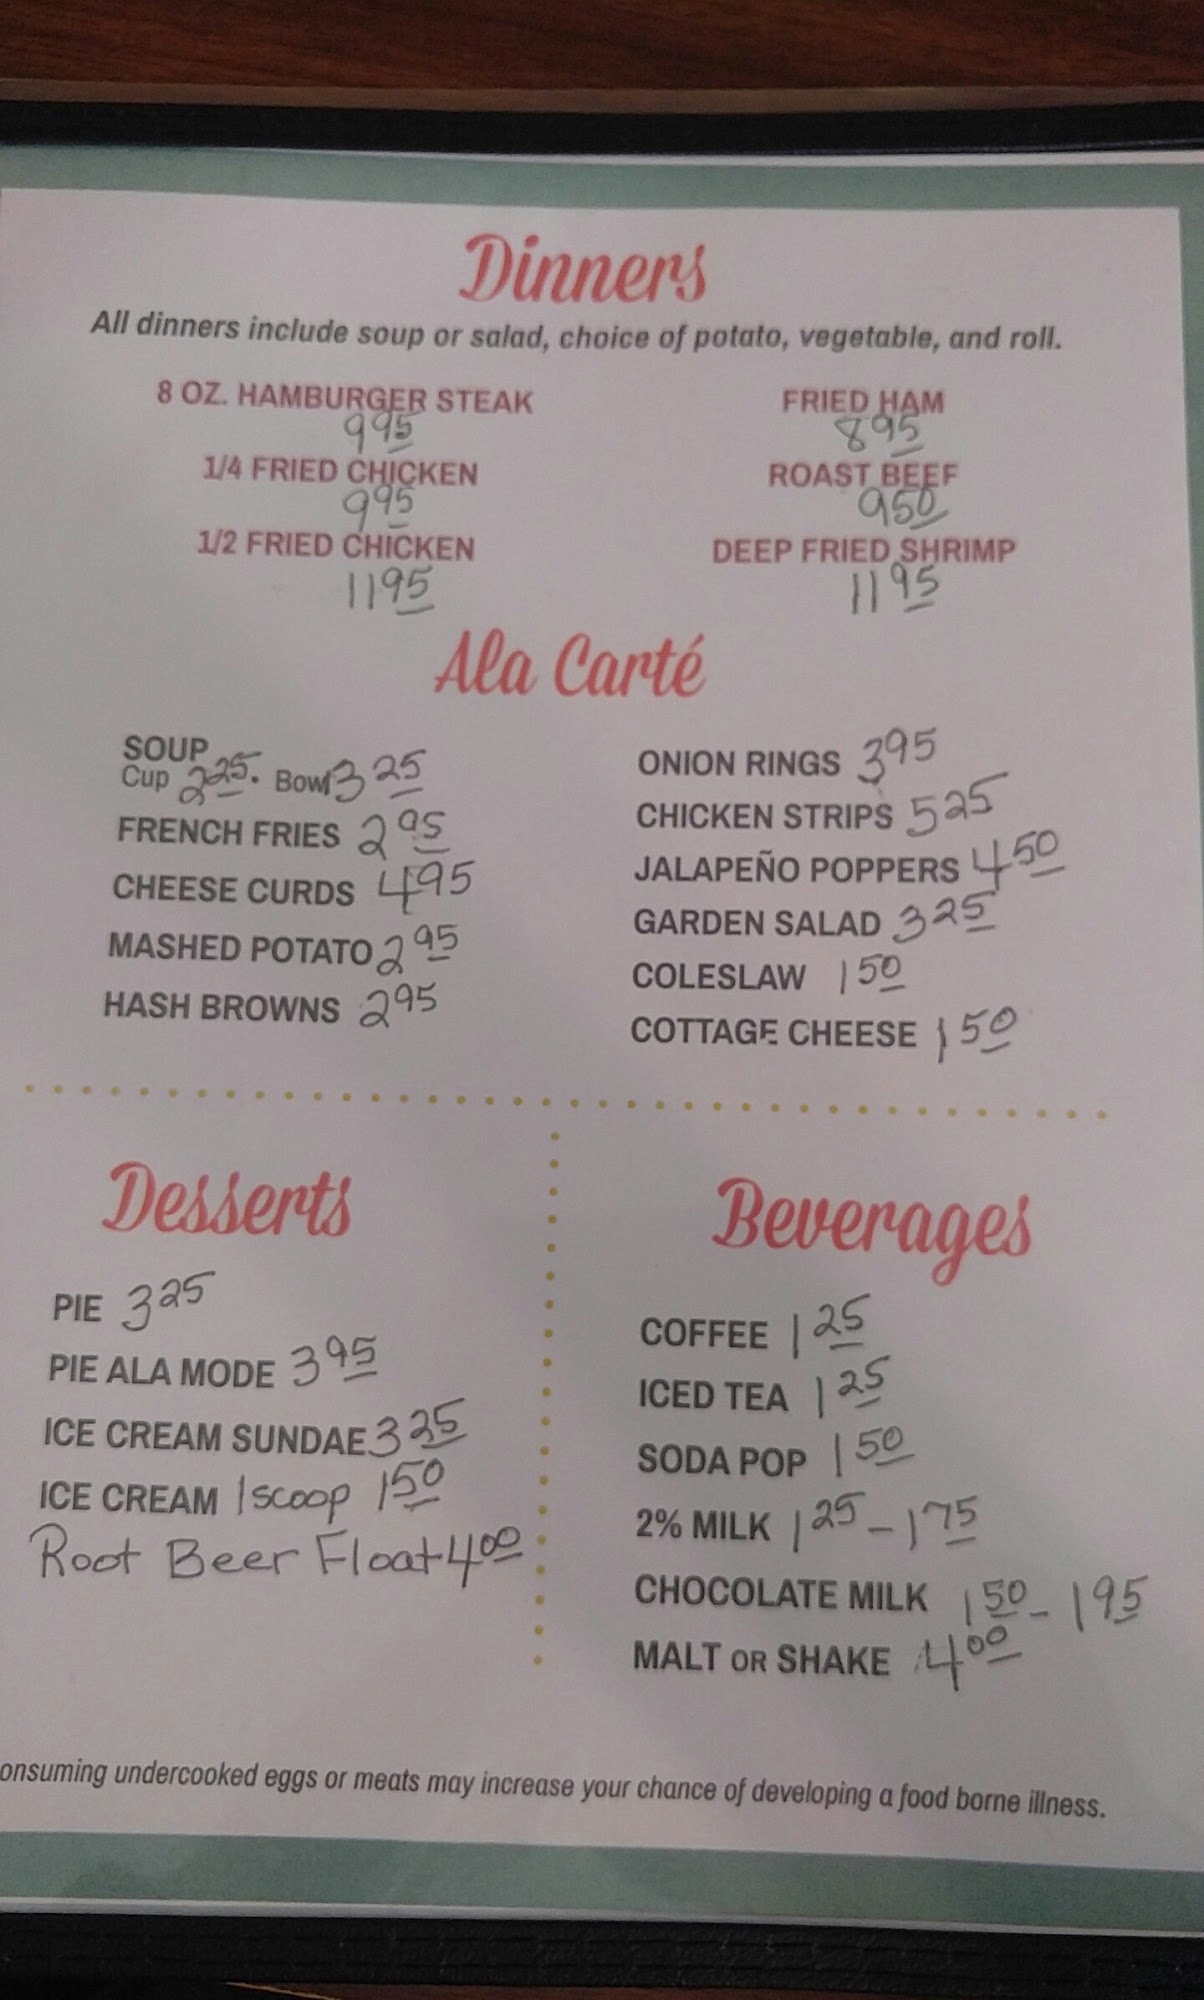 Dinners
All dinners include soup or salad, choice of potato, vegetable, and roll.
8 OZ. HAMBURGER STEAK
995
1/4 FRIED CHICKEN
995
1/2 FRIED CHICKEN
1195
FRIED HAM
895
ROAST BEEF
950
DEEP FRIED SHRIMP
1195
Ala Carté
SOUP
Cup 225. Bowl 325
FRENCH FRIES 295
CHEESE CURDS 495
MASHED POTATO 295
HASH BROWNS 295
ONION RINGS 395
CHICKEN STRIPS 525
JALAPEÑO POPPERS 450
GARDEN SALAD 325
COLESLAW 150
COTTAGE CHEESE 150
Desserts
PIE 325
PIE ALA MODE 395
ICE CREAM SUNDAE 325
ICE CREAM 1 scoop 150
Root Beer Float 400
Beverages
COFFEE 125
ICED TEA 125
SODA POP 150
2% MILK 125 - 175
CHOCOLATE MILK 150 - 195
MALT OR SHAKE 400
onsuming undercooked eggs or meats may increase your chance of developing a food borne illness.